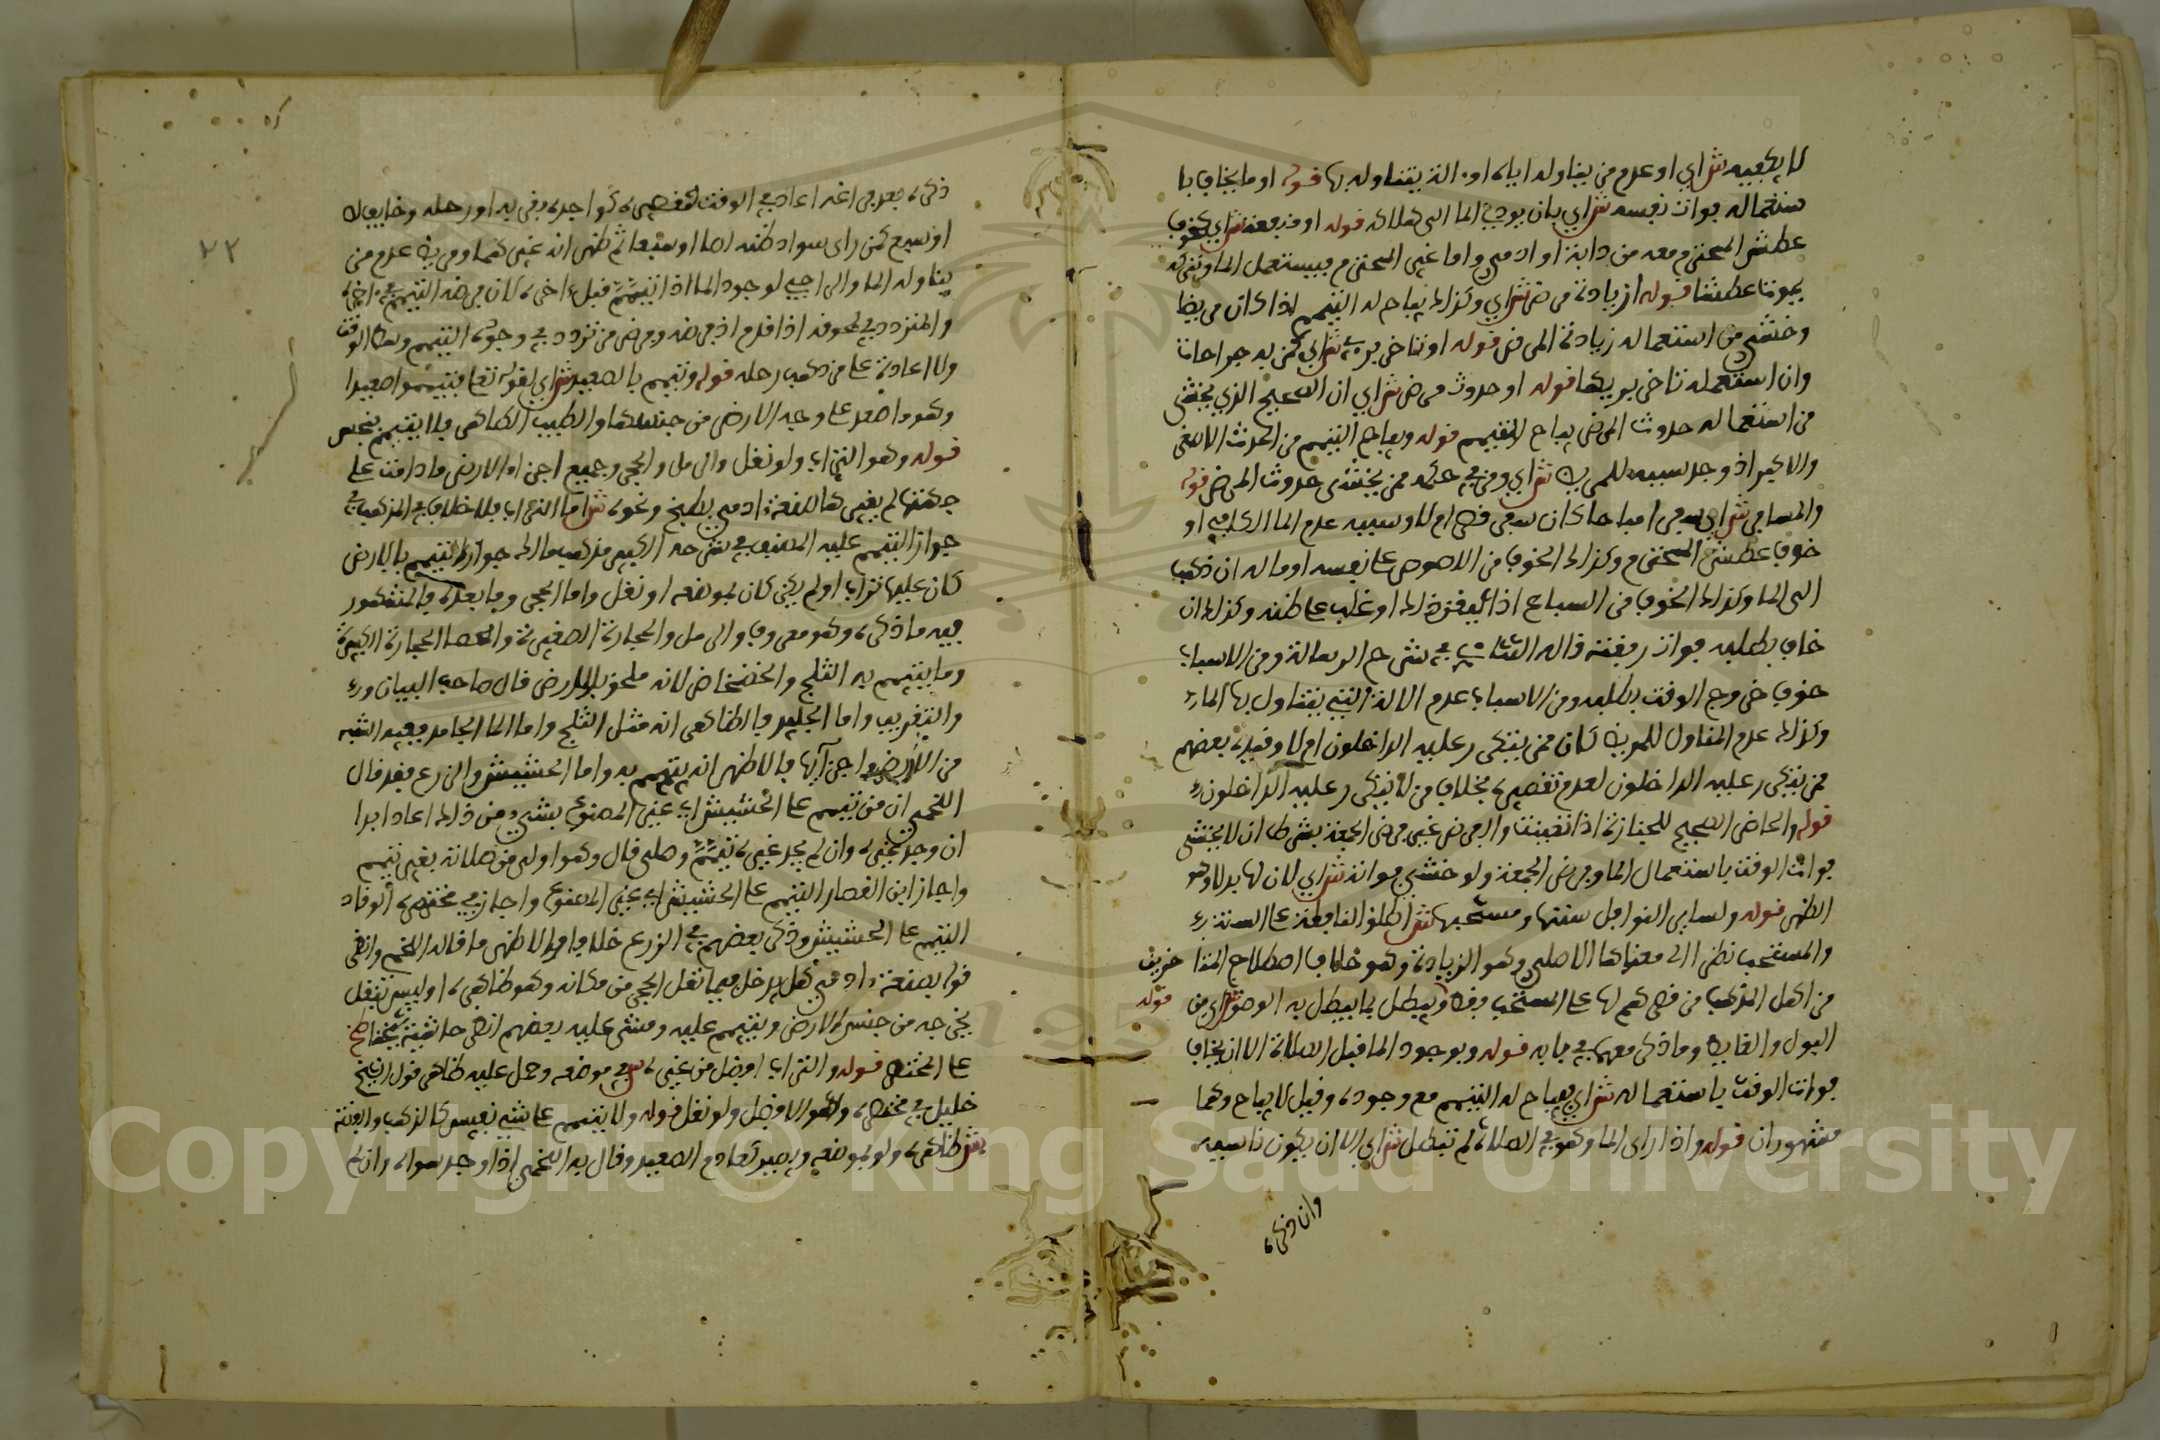 لا يكفيه ش اي او عدم من يناوله اياه او الة يتناوله بها قوله او ما يخاف با
ستعماله فوات نفسه ش اي بان يودي الما الى هلاكه قوله او منفعة ش اي كخوف
عطش المحترم معه من دابة او ادمي واما غير المحترم فيستعمل الما وتتركه
يموت عطشا قوله او زيادة مرض ش اي وكذلك يباح له التيمم اذا كان مريضا
وخشي من استعماله زيادة المرض قوله او تاخر برء ش اي كمن به جراحات
وان استعمله تاخر برءها قوله او حدوث مرض ش اي ان الصحيح الذي يخشى
من استعماله حدوث المرض يباح له التيمم قوله ويباح التيمم من الحدث الاصغر
والاكبر اذ وجد سببه للمريض ش اي ومن في حكمه ممن يخشى حدوث المرض قوله
والمسافر ش اي سفرا مباحا كان سفر قصر ام لا وسببه عدم الما الكافي او
خوف عطش المحترم وكذلك الخوف من اللصوص على نفسه او ماله ان ذهب
الى الما وكذلك الخوف من السباع اذا تيقن ذلك او غلب على ظنه وكذلك ان
خاف بطلبه فوات رفقته قاله الشاذلي في شرح الرسالة ومن الاسباب
خوف خروج الوقت بطلبه ومن الاسباب عدم الالة التي يتناول بها الماء
وكذلك عدم المناول للمريض كان ممن يتكرر عليه الداخلون ام لا وقيده بعضهم
ممن يتكرر عليه الداخلون لعدم تقصيره بخلاف من لا يتكرر عليه الداخلون
قوله والحاضر الصحيح للجنازة اذا تعينت والفرض غير فرض الجمعة بشرط ان لا يخشى
فوات الوقت باستعمال الما وفرض الجمعة ولو خشي فواتها ش اي لان لها بدلا وهو
الظهر قوله ولساير النوافل سنتها ومستحبها ش اطلق النافلة على السنة
والمستحب نظرا الى معناها الاصلي وهو الزيادة وهو خلاف اصطلاح المتاخرين
من اهل المذهب من قصرهم لها على المستحب فقط قوله ويبطل بما يبطل به الوضوء ش اي من
البول والغايط وما ذكر معهما في بابه قوله وبوجود الما قبل الصلاة الا ان يخاف
فوات الوقت باستعماله ش اي فيباح له التيمم مع وجوده وقيل لا يباح وهما
مشهوران قوله واذا راى الما وهو في الصلاة لم تبطل ش اي الا ان يكون ناسيه
وان ذكره
٢٢
ذكره بعد فراغه اعاد في الوقت لتقصيره كواجده بقربه او رحله وخايف لص
او سبع كمن راى سوادا ظنه لصا او سبعا ثم ظهر انه غيرهما ومريض عدم من
يناوله الما والراجي لوجود الما اذا تيمم قبل اخره لان فرضه التيمم في اخره
والمتردد في لحوقه اذا قدم اذ فرضه وفرض من تردد في وجوده التيمم وسط الوقت
ولا اعادة على من ذهب رحله قوله وتيمم بالصعيد ش اي لقوله تعا فتيمموا صعيدا
وهو ما صعد على وجه الارض من جنسها والطيب الطاهر فلا يتيمم بنجس
قوله وهو التراب ولو نقل والرمل والحجر وجميع اجزاء الارض ما دامت على
جهتها لم يغيرها صنعة ادمي بطبخ ونحوه ش اما التراب فلا خلاف في المذهب في
جواز التيمم عليه المصنف في شرحه الكبير مذهب مالك جواز التيمم بالارض
كان عليها تراب او لم يكن كان بموضعه او نقل واما الحجر وما بعده فالمشهور
فيه ما ذكره وهو معروف والرمل والحجارة الصغيرة والحصا الحجارة الكبيرة
وما يتيمم به الثلج والخضخاض لانه ملحق بالارض قال صاحب البيان
والتقريب واما الجليد فالظاهر انه مثل الثلج واما الما الجامد ففيه الشبه
من الارض واجزائها فالاظهر انه يتيمم به واما الحشيش والزرع فقد قال
اللخمي ان من تيمم على الحشيش اي غير المصنوع بشيء من ذلك اعاد ابدا
ان وجد غيره وان لم يجد غيره تيمم وصلى قال وهو اولى من صلاته بغير تيمم
واجاز ابن القصار التيمم على الحشيش اي غير المصنوع واجاز في مختصر الوقار
التيمم على الحشيش وذكر بعضهم في الزرع خلافا والاظهر ما قاله اللخمي وانظر
قوله بصنعة ادمي هل يدخل فيما نقل الحجر من مكانه وهو ظاهره او ليس بنقل
يخرجه من جنس الارض ويتيمم عليه ومشى عليه بعضهم انظر حاشية شيخنا
على المختصر قوله والتراب افضل من غيره ش في موضعه وحمل عليه ظاهر قول الشيخ
خليل في مختصره وهو الافضل ولو نقل قوله ولا يتيمم على شيء نفيس كالذهب والفضة
ش ظاهره ولو بموضعه وبصير كعادم الصعيد وقال به اللخمي اذا وجد سواه وان لم